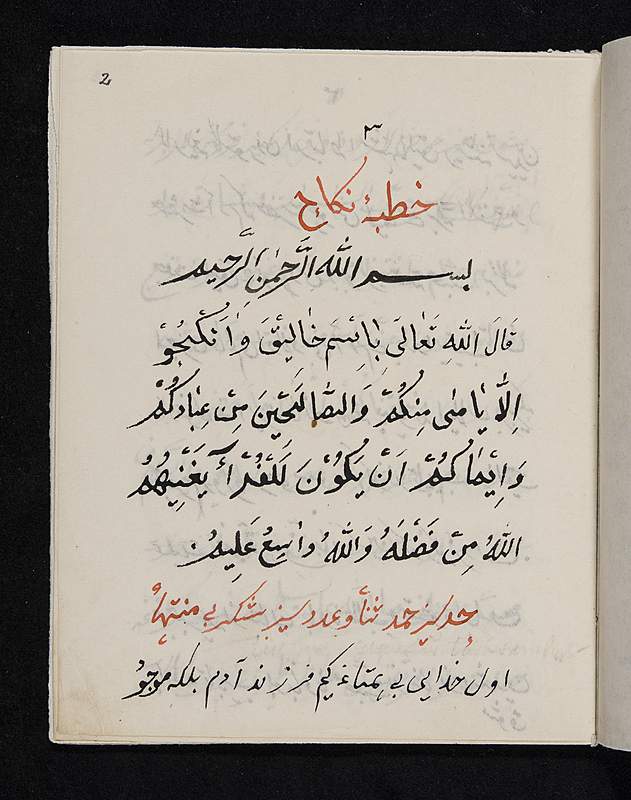 2
٣
خطبهٔ نكاح
بسم الله الرَّحمٰن الرَّحيم
قَالَ اللّٰهِ تَعٰالَى بٰاِسِمَ خٰالِيقَ وَاَنْكِحُوْ
اِلاّٰ يٰامٰى مِنْكُمْ وَالصّٰالَحَيْنَ مِنْ عِبٰادِكُمْ
وَاِيْمٰاكُمْ اَنْ يَكُوْنَ لَلْفُقْرٰآَ يَغْنِيهُمُ
اللّٰهُ مِنْ فَضْلَهُ وَاللّٰهُ وٰاسِعُ عَلِيمُ
حدسيز حمد ثنأ و عددسيز شكر بى منتهأ
اول خدايى بى همتاغه كيم فرزند آدم بلكه موجو